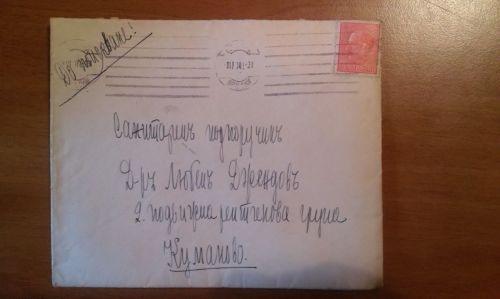 Санитаренъ подпоручикъ
Д-ръ Любенъ Джендовъ
2. подвижна рентгенова група
Куманово.